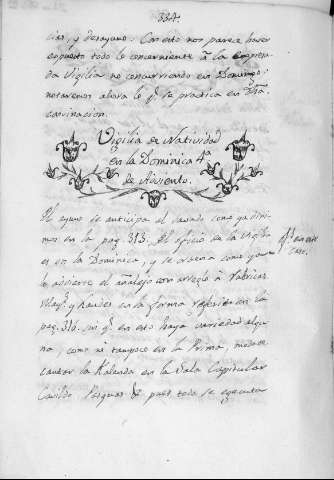 334.
cias, y desayuno: Con esto nos parece haver
expuesto todo lo concerniente â la expresa-
da Vigilia no concurriendo en Domingo:
notaremos ahora lo q.e se practica en
concurriendo.
Vigilia de Natividad
en la Dominica 4.a
de Adviento.
El ayuno se anticipa al savado como ya dixi-
mos en la pag. 313. El oficio de la Vigilia
es en la Dominica, y se ordena como
lo advierte el añalejo con arreglo à Rubricas
May.s y Laudes en la forma referida en la
pag. 310. sin q.e en esto haya variedad algu-
na, como ni tampoco en la Prima,
cantar la Kalenda en la Sala Capitular
Cavildo Pasquas &c. pues todo se executa
en este
caso.